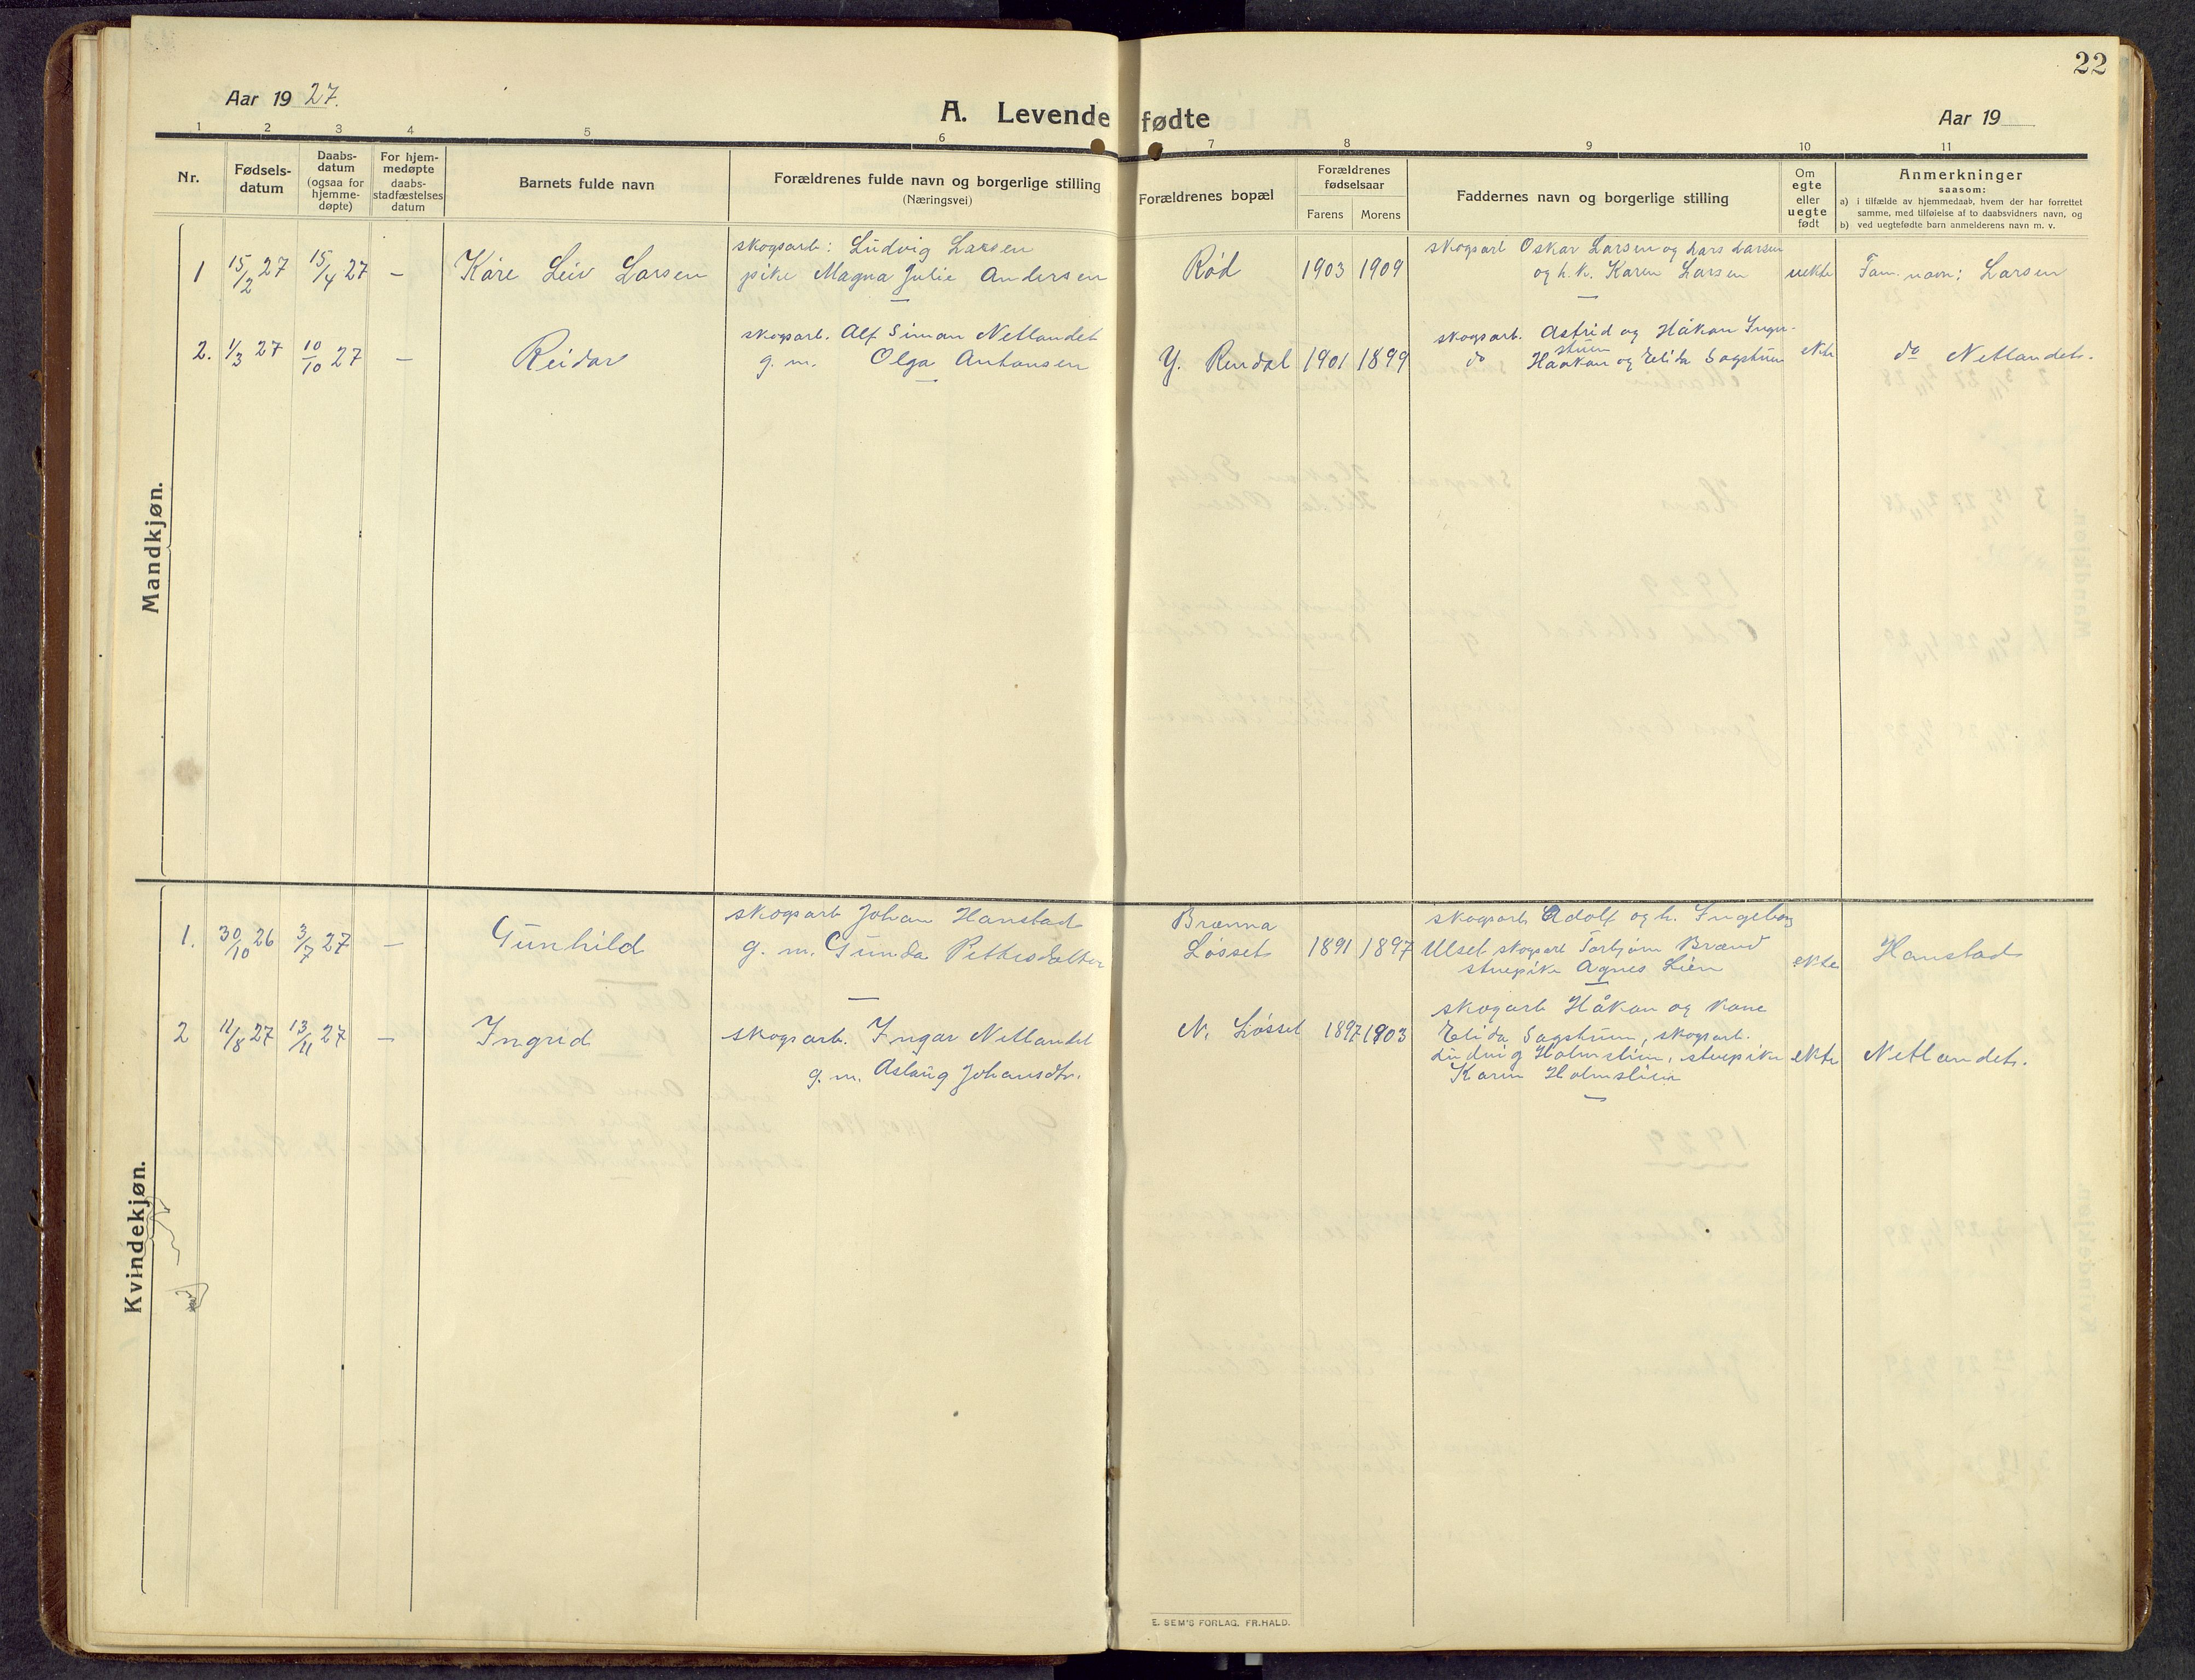 22
Aar 19 27.
A. Levende fødte
Aar 19
1 2 3 4 5 6 7 8 9 10 11
Nr.
Fødsels-
datum
Daabs-
datum
(ogsaa for
hjemme-
døpte)
For hjem-
medøpte
daabs-
stadfæstelses
datum
Barnets fulde navn
Forældrenes fulde navn og borgerlige stilling
(Næringsvei)
Forældrenes bopæl
Forældrenes
fødselsaar
Farens Morens
Faddernes navn og borgerlige stilling
Om
egte
eller
uegte
født
Anmerkninger
saasom:
a) i tilfælde av hjemmedaab, hvem der har forrettet
samme, med tilføielse af to daabsvidners navn, og
b) ved uegtefødte barn anmelderens navn m. v.
Mandkjøn.
1 15/2 27 15/4 27 – Kåre Leiv Larsen
skogsarb: Ludvig Larsen
pike Magna Julie Andersen
Rød 1903 1909
skogsarb Oskar Larsen og Lars Larsen
og h. k. Karen Larsen
uekte
Fam. navn: Larsen
2. 1/3 27 10/10 27 – Reidar
skogsarb. Alf Simon Netlandet
g. m. Olga Antonsen
Y. Rendal 1901 1899
skogsarb. Astrid og Håkon Inger-
stuen
do Haakon og Elida Sagstuen
ekte
do Netlandet.
Kvindekjøn.
1. 30/10 26 3/7 27 – Gunhild
skogsarb Johan Hanstad
g. m. Gunda Pettersdatter
Brænna
Løsset 1891 1897
skogsarb Adolf og h. Ingeborg
Ulset skogsarb Torbjørn Brænd
stuepike Agnes Lien
ekte
Hanstad
2 11/8 27 13/11 27 – Ingrid
skogsarb. Ingar Netlandet
g. m. Aslaug Johansdtr.
N. Løsset 1897 1903
skogarb Håkon og kone
Elida Sagstuen, skogsarb.
Ludvig Holmstuen, stuepike
Karen Holmstuen
ekte
Netlandet.
E. SEM'S FORLAG. FR.HALD.